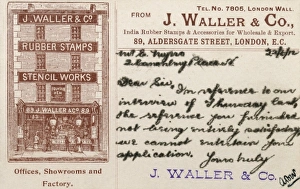 J. WALLER & Co.
RUBBER STAMPS
STENCIL WORKS
89 J. WALLER & Co 89
Offices, Showrooms and
Factory.
TEL. NO. 7805, LONDON WALL.
FROM J. WALLER & Co.,
India Rubber Stamps & Accessories for Wholesale & Export.
89, ALDERSGATE STREET, LONDON, E.C.
Dear Sir
In reference to our
interview of Thursday last,
the reference you furnished
not being entirely satisfactory
we cannot entertain your
application. Yours truly
J. WALLER & Co.